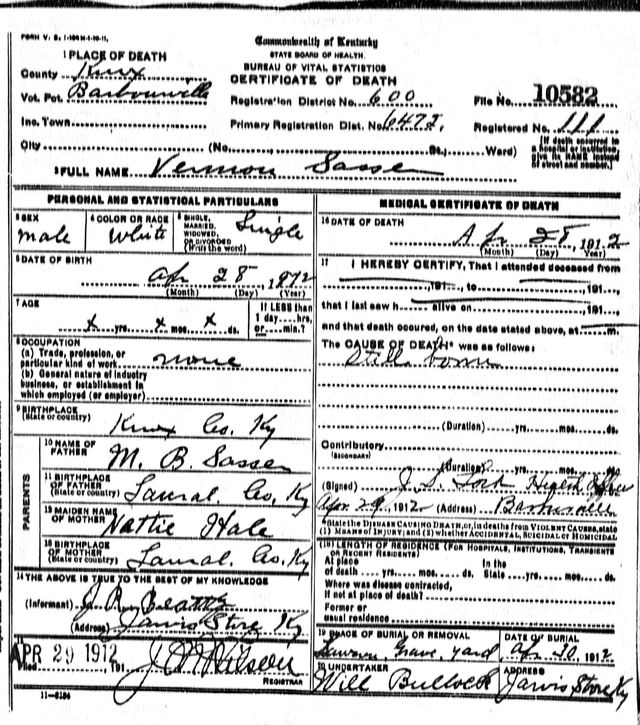 FORM V. S. 1-
Commonwealth of Kentucky
STATE BOARD OF HEALTH.
BUREAU OF VITAL STATISTICS
CERTIFICATE OF DEATH
1 PLACE OF DEATH
County Knox
Vot. Pct. Barbourville
Registration District No. 600
File No. 10582
Inc. Town
Primary Registration Dist. No. 6472.
Registered No. 111
City (No. St., Ward)
[If death occurred in a hospital or institution, give its NAME instead of street and number.]
2 FULL NAME Vernon Sasser
PERSONAL AND STATISTICAL PARTICULARS
3 SEX male
4 COLOR OR RACE White
5 SINGLE, MARRIED, WIDOWED, OR DIVORCED (Write the word) Single
6 DATE OF BIRTH
Apr 28, 1912
(Month) (Day) (Year)
7 AGE
x yrs. x mos. x ds.
If LESS than 1 day....hrs. or....min.?
8 OCCUPATION
(a) Trade, profession, or particular kind of work none
(b) General nature of industry business, or establishment in which employed (or employer)
9 BIRTHPLACE
(State or country) Knox Co. Ky
PARENTS
10 NAME OF FATHER M. B. Sasser
11 BIRTHPLACE OF FATHER (State or country) Laural Co. Ky
12 MAIDEN NAME OF MOTHER Nattie Hale
13 BIRTHPLACE OF MOTHER (State or country) Laural. Co. Ky
14 THE ABOVE IS TRUE TO THE BEST OF MY KNOWLEDGE
(Informant) J. R. Beatty
(Address) Jarvis Store Ky
APR 29 1912, 191
J. Wilson
REGISTRAR
11-
MEDICAL CERTIFICATE OF DEATH
16 DATE OF DEATH
Apr 28, 1912
(Month) (Day) (Year)
17 I HEREBY CERTIFY, That I attended deceased from
, 191..., to , 191...,
that I last saw h alive on , 191...,
and that death occured, on the date stated above, at m.
The CAUSE OF DEATH* was as follows:
Still born
(Duration) yrs. mos. ds.
Contributory
(SECONDARY)
(Duration) yrs. mos. ds.
(Signed) J. S. Health Officer
Apr. 29, 1912 (Address) Barbourville
*State the DISEASE CAUSING DEATH, or, in deaths from VIOLENT CAUSES, state (1) MEANS OF INJURY; and (2) whether ACCIDENTAL, SUICIDAL or HOMICIDAL
18 LENGTH OF RESIDENCE (FOR HOSPITALS, INSTITUTIONS, TRANSIENTS OR RECENT RESIDENTS)
At place of death yrs. mos. ds. In the State yrs. mos. ds.
Where was disease contracted, if not at place of death?
Former or usual residence
19 PLACE OF BURIAL OR REMOVAL
Grave yard
DATE OF BURIAL
Apr. 30, 1912
20 UNDERTAKER
Will Bullock
ADDRESS
Jarvis Store Ky